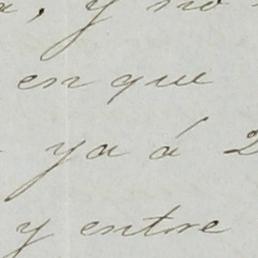 , y no
en que
ya á 2
y entre